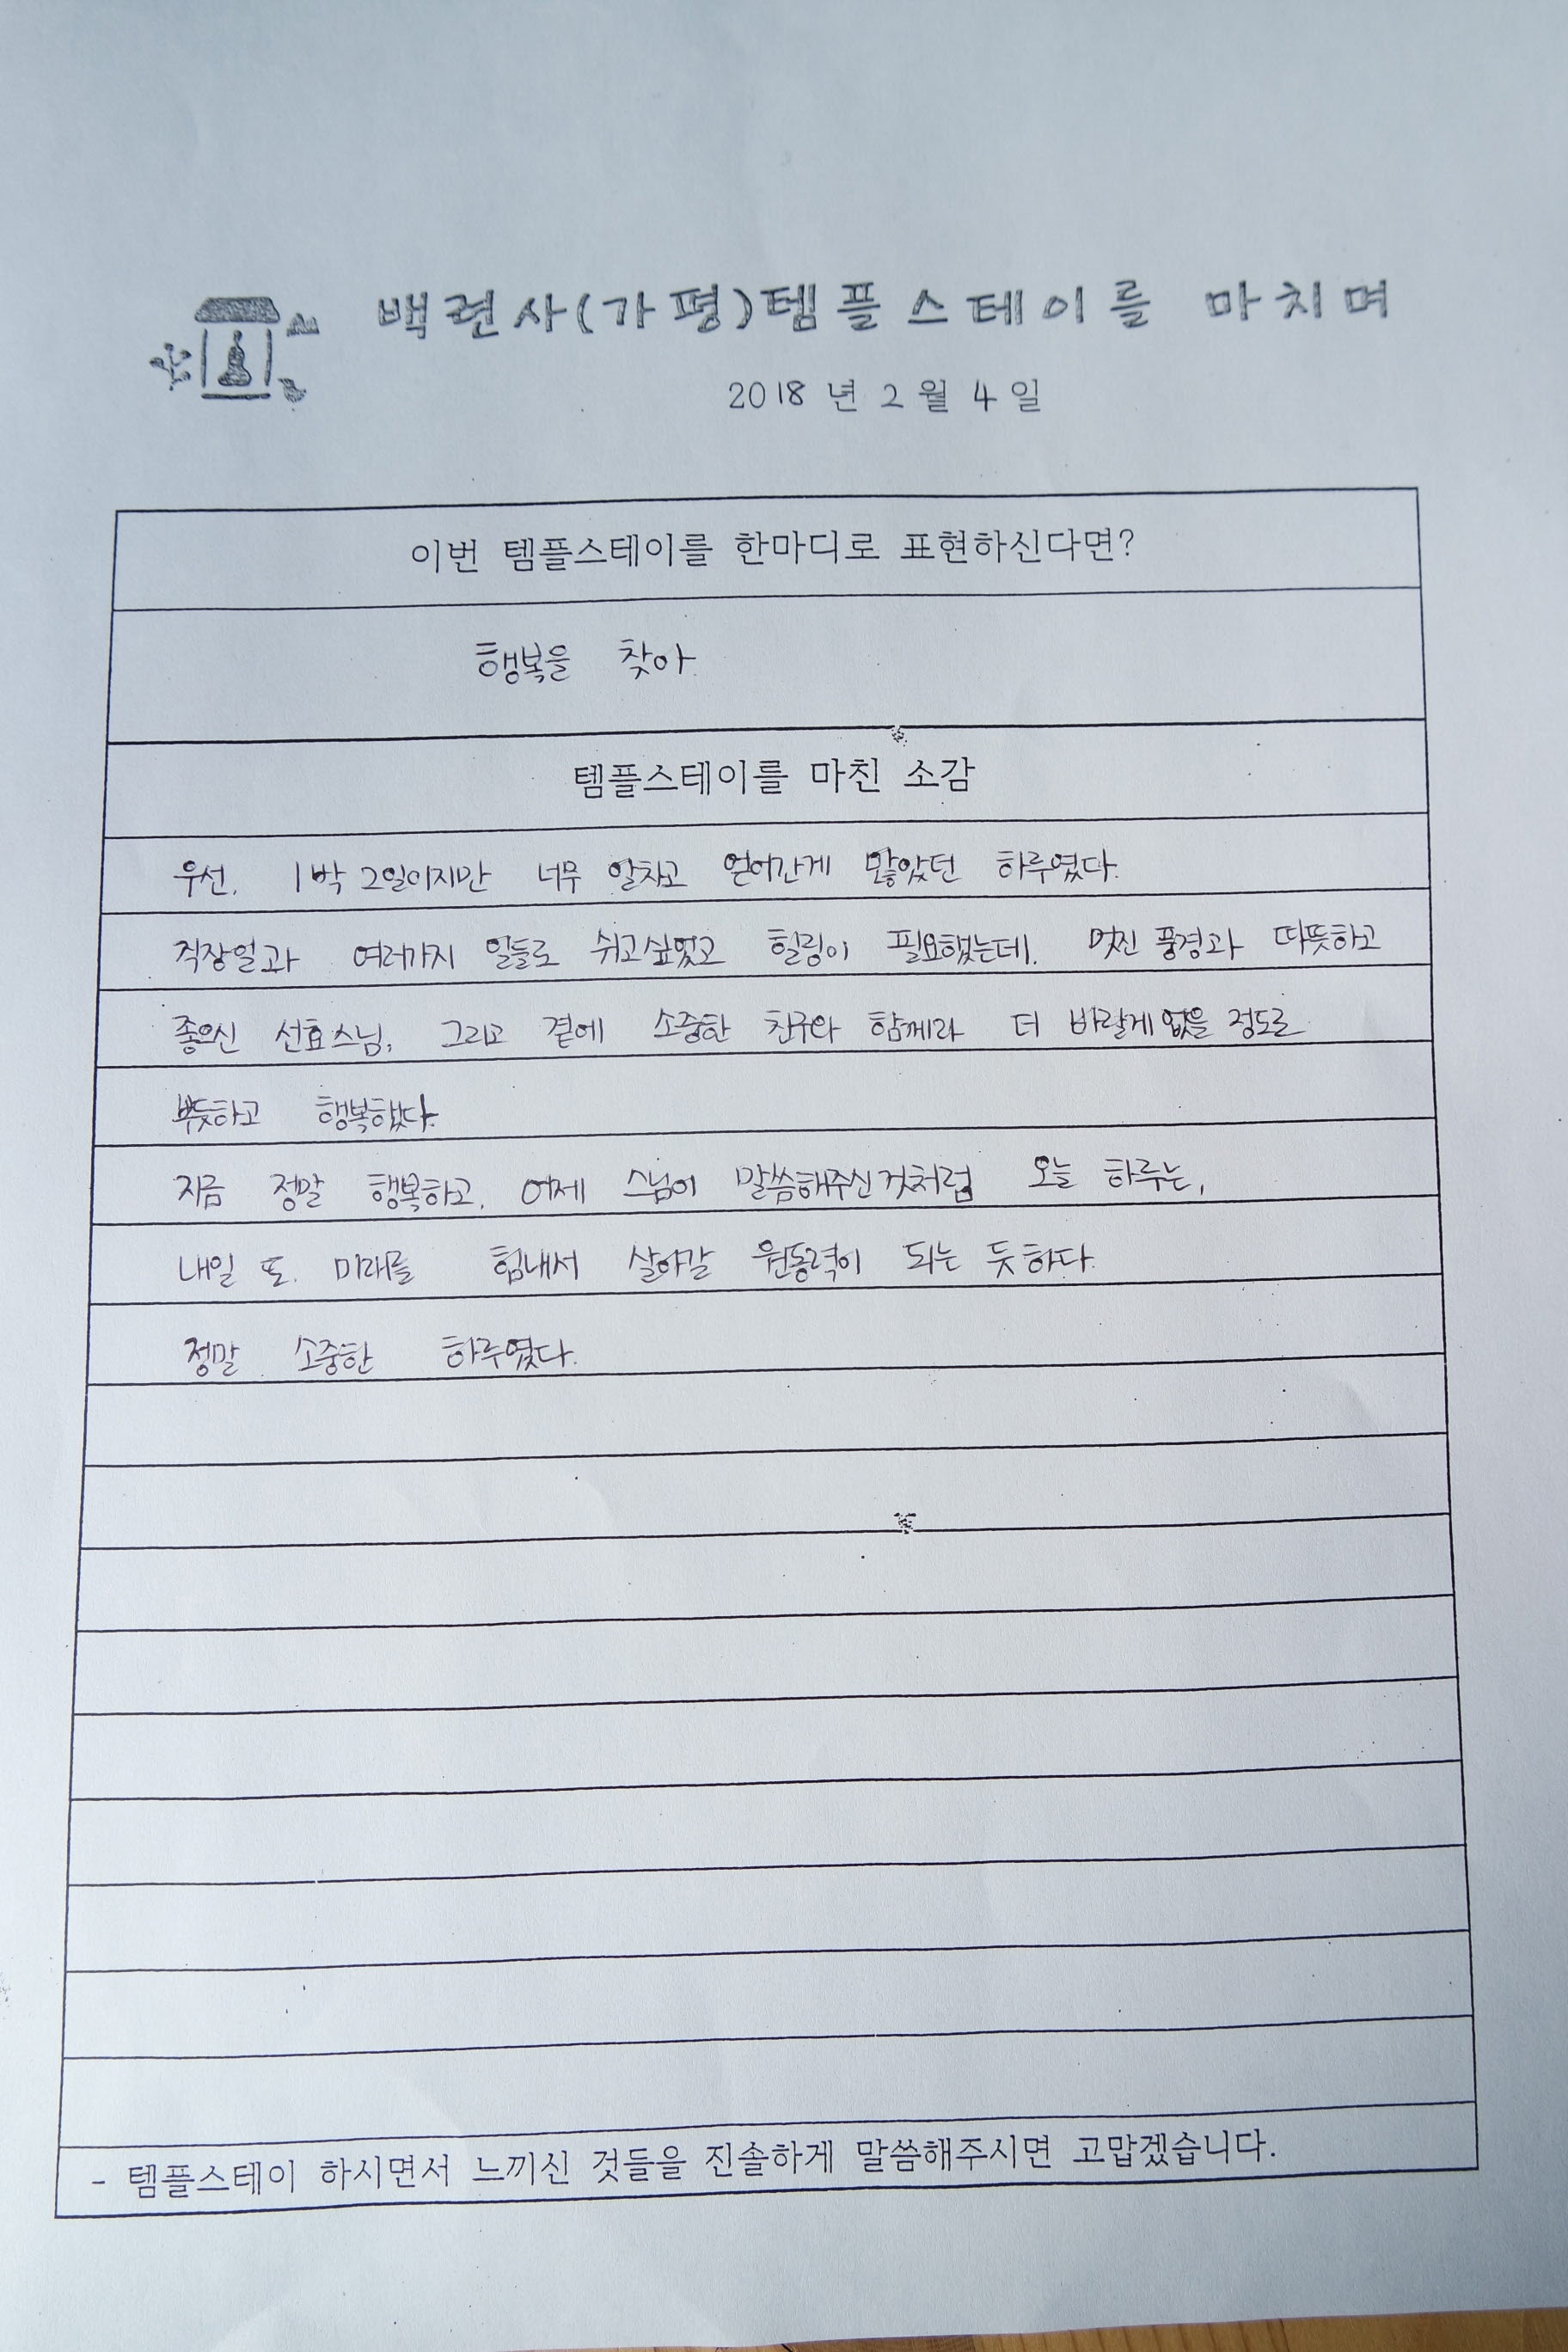 백련사(가평)템플스테이를 마치며
2018 년 2 월 4 일
이번 템플스테이를 한마디로 표현하신다면?
행복을 찾아.
템플스테이를 마친 소감
우선. 1박 2일이지만 너무 알차고 얻어간게 많았던 하루였다.
직장일과 여러가지 일들로 쉬고싶었고 힐링이 필요했는데. 멋진 풍경과 따뜻하고
좋으신 선효스님, 그리고 곁에 소중한 친구와 함께라 더 바랄게 없을 정도로
뿌듯하고 행복했다.
지금 정말 행복하고, 어제 스님이 말씀해주신것처럼 오늘 하루는,
내일 또. 미래를 힘내서 살아갈 원동력이 되는 듯하다.
정말 소중한 하루였다.
- 템플스테이 하시면서 느끼신 것들을 진솔하게 말씀해주시면 고맙겠습니다.